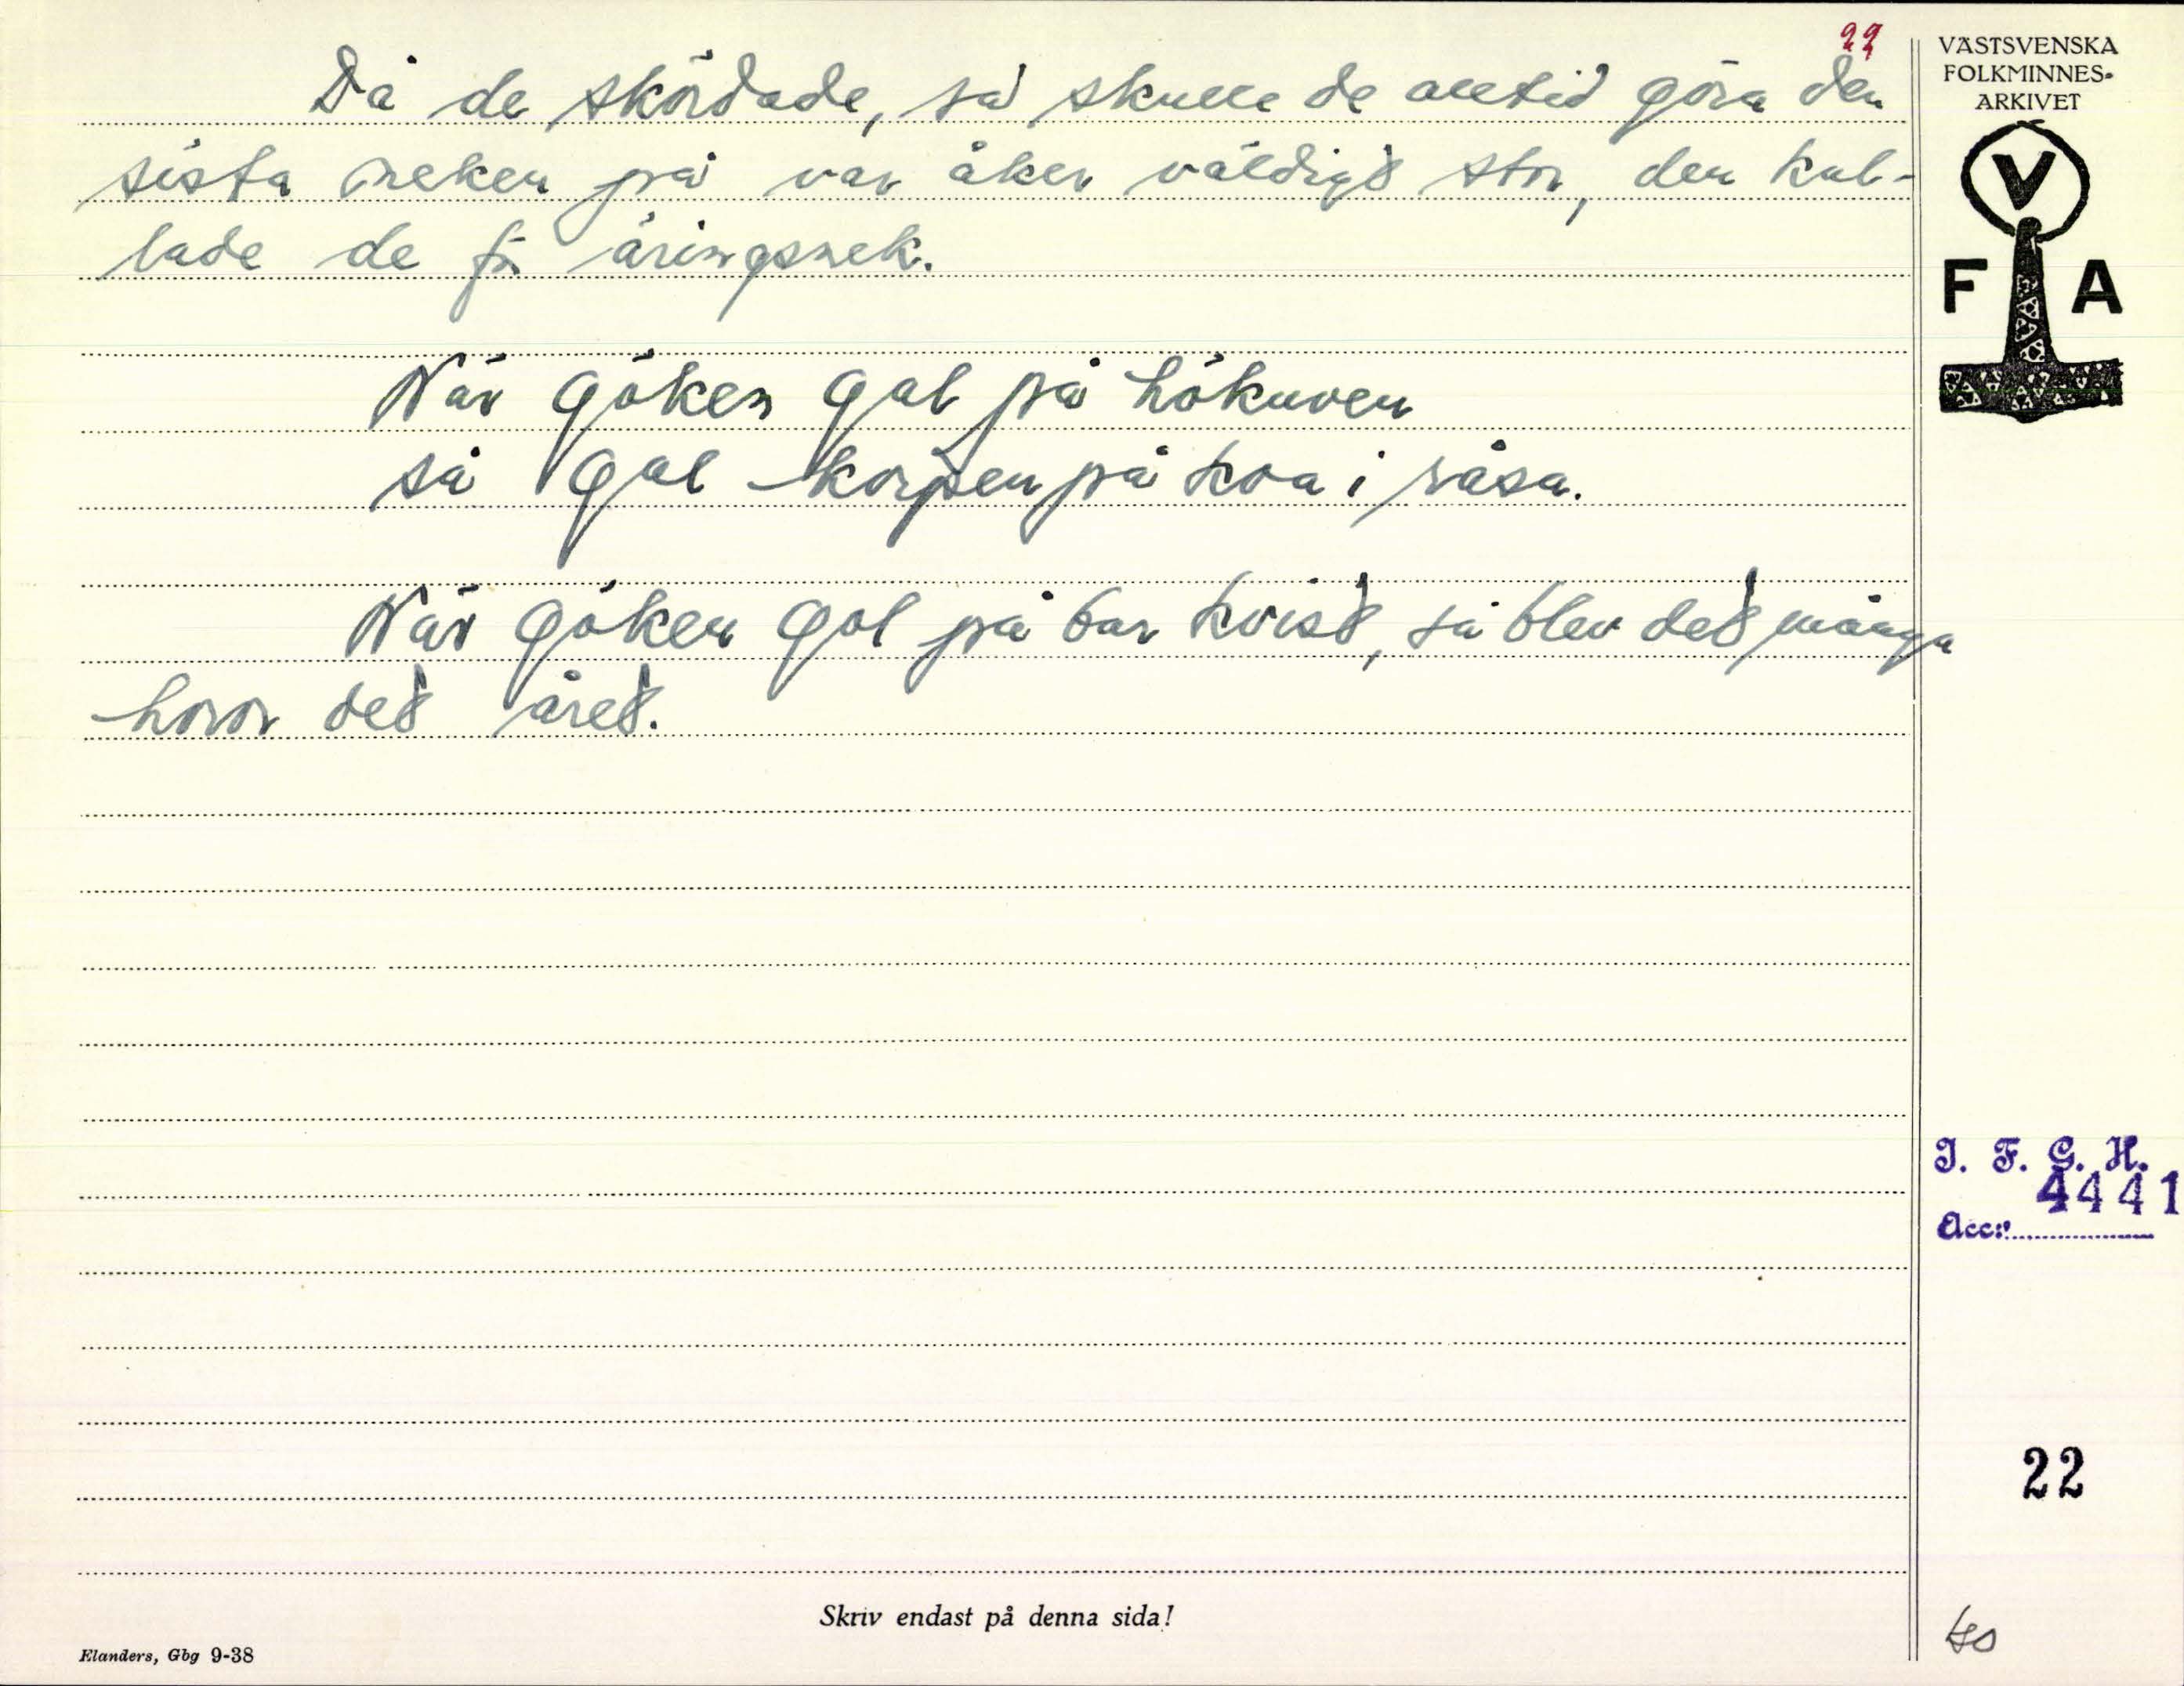 22
Då de skördade, så skulle de alltid göra den
sista neken på var åker väldigt stor, den kal-
lade de för äringsnek.
När göken gal på hökuven
så gal korpen på koa i råsa.
När göken gol på bar kvist, så blev det många
horor det året.
VÄSTSVENSKA
FOLKMINNES-
ARKIVET
V
F A
I. F. G. H.
4441
Acc:
22
Skriv endast på denna sida!
Elanders, Gbg 9-38